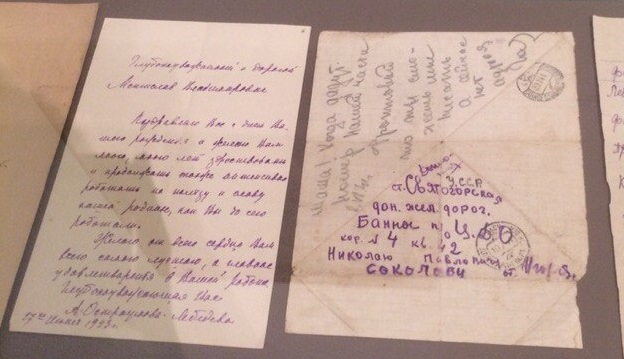 Глубокоуважаемый и дорогой
Мстислав Владимирович
Поздравляю Вас с днем Ва-
шего рождения и желаю Вам
много, много лет здравствовать
и продолжать также
работать на пользу и славу
нашей родины, как Вы до сего
работали.
Желаю от всего сердца Вам
всего самого лучшего, а главное
удовлетворения в Вашей работе
Глубокоуважающая Вас
А. Остроумова-Лебедева
1943 г.
Маша! Когда дадут
номер нашей части
писать
А сейчас
нет
У.С.С.Р.
ст. Святогорская
дон. жел. дорог.
Банное п/о Ц.
кор. № 4 кв. 42
Николаю Павловичу
Соколову
от